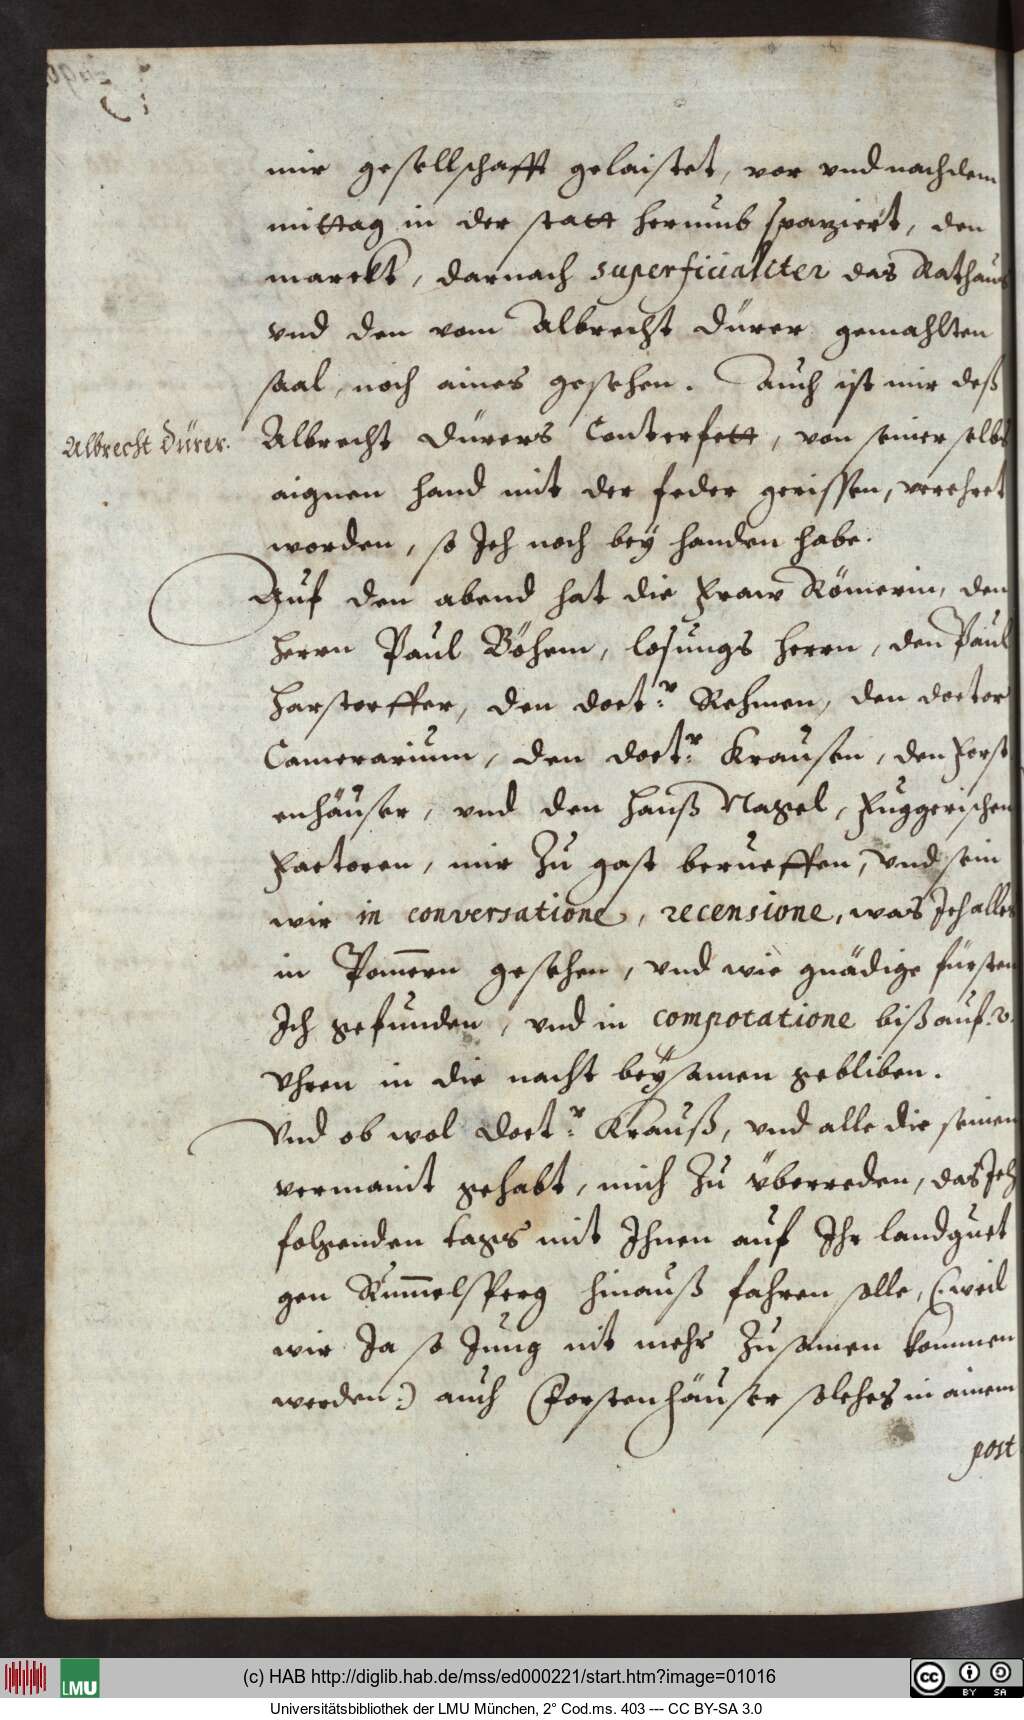 mir gesellschafft gelaistet, vor vnd nachdem
mittag in der statt herumb spaziert, den
marckt, darnach superficialiter das Rathaus
vnd den vom Albrecht Dürer gemahlten
saal, noch aines gesehen. Auch ist mir deß
Albrecht Dürer.
Albrecht Dürers Conterfett, von seiner selbs
aignen hand mit der feder gerissen, verehret
worden, so Ich noch bey handen habe.
Auf den abend hat die Fraw Römerin, den
herrn Paul Böhem, losungs herrn, den Paul
Harstorffer, den doct:r Rehmen, den doctor
Camerarium, den doct:r Krausen, den Forst
enhäuser, vnd den Hanß Nagel, Fuggerischen
Factoren, mir Zu gast berueffen, vnd sein
wir in conversatione, recensione, was Ich alles
in Pom̄ern gesehen, vnd wie gnädige fürsten
Ich gefunden, vnd in compotatione biß auf .2.
Vhren in die nacht beysamen gebliben.
Vnd ob wol doct:r Krauß, vnd alle die seinen
vermaint gehabt, mich Zu überreden, das Ich
folgenden tags mit Ihnen auf Ihr landguet
gen Rum̄elsperg hinauß fahren solle, (: weil
wir Ja so Jung nit mehr Zusamen kommen
werden:) auch Forstenhäuser solches in ainem
post
(c) HAB http://diglib.hab.de/mss/ed000221/start.htm?image=01016
LMU
cc BY SA
Universitätsbibliothek der LMU München, 2° Cod.ms. 403 --- CC BY-SA 3.0